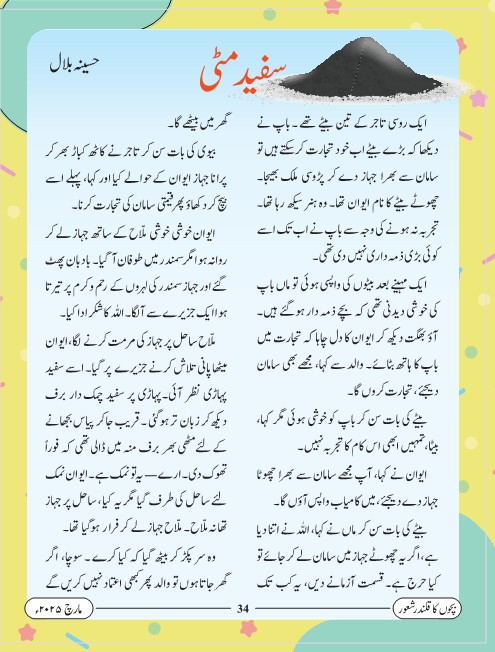 سفید مٹی
حسینہ بلال
ایک روسی تاجر کے تین بیٹے تھے۔ باپ نے
دیکھا کہ بڑے بیٹے اب خود تجارت کرسکتے ہیں تو
سامان سے بھرا جہاز دے کر پڑوسی ملک بھیجا۔
چھوٹے بیٹے کا نام ایوان تھا۔ وہ ہنر سیکھ رہا تھا۔
تجربہ نہ ہونے کی وجہ سے باپ نے اب تک اسے
کوئی بڑی ذمہ داری نہیں دی تھی۔
ایک مہینے بعد بیٹوں کی واپسی ہوئی تو ماں باپ
کی خوشی دیدنی تھی کہ بچے ذمہ دار ہوگئے ہیں۔
آؤ بھگت دیکھ کر ایوان کا دل چاہا کہ تجارت میں
باپ کا ہاتھ بٹائے۔ والد سے کہا، مجھے بھی سامان
دیجئے، تجارت کروں گا۔
بیٹے کی بات سن کر باپ کو خوشی ہوئی مگر کہا،
بیٹا، تمہیں ابھی اس کام کا تجربہ نہیں۔
ایوان نے کہا، آپ مجھے سامان سے بھرا چھوٹا
جہاز دے دیجئے، میں کامیاب واپس آؤں گا۔
بیٹے کی بات سن کر ماں نے کہا، اللہ نے اتنا دیا
ہے، اگر یہ چھوٹے جہاز میں سامان لے کر جائے تو
کیا حرج ہے۔ قسمت آزمانے دیں، یہ کب تک
گھر میں بیٹھے گا۔
بیوی کی بات سن کر تاجر نے کاٹھ کباڑ بھر کر
پرانا جہاز ایوان کے حوالے کیا اور کہا، پہلے اسے
بیچ کر دکھاؤ پھر قیمتی سامان کی تجارت کرنا۔
ایوان خوشی خوشی ملّاح کے ساتھ جہاز لے کر
روانہ ہوا مگر سمندر میں طوفان آگیا۔ بادبان پھٹ
گئے اور جہاز سمندر کی لہروں کے رحم و کرم پر تیرتا
ہوا ایک جزیرے سے آلگا۔ اللہ کا شکر ادا کیا۔
ملّاح ساحل پر جہاز کی مرمت کرنے لگا، ایوان
میٹھا پانی تلاش کرنے جزیرے پر گیا۔ اسے سفید
پہاڑی نظر آئی۔ پہاڑی پر سفید چمک دار برف
دیکھ کر زبان تر ہوگئی۔ قریب جا کر پیاس بجھانے
کے لئے مٹھی بھر برف منہ میں ڈالی تھی کہ فوراً
تھوک دی۔ ارے — یہ تو نمک ہے۔ ایوان نمک
لئے ساحل کی طرف گیا مگر یہ کیا، ساحل پر جہاز
تھا نہ ملّاح۔ ملّاح جہاز لے کر فرار ہوگیا تھا۔
وہ سر پکڑ کر بیٹھ گیا کہ کیا کرے۔ سوچا، اگر
گھر جاتا ہوں تو والد پھر کبھی اعتماد نہیں کریں گے
بچوں کا قلندر شعور
34
مارچ ۲۰۲۵ء